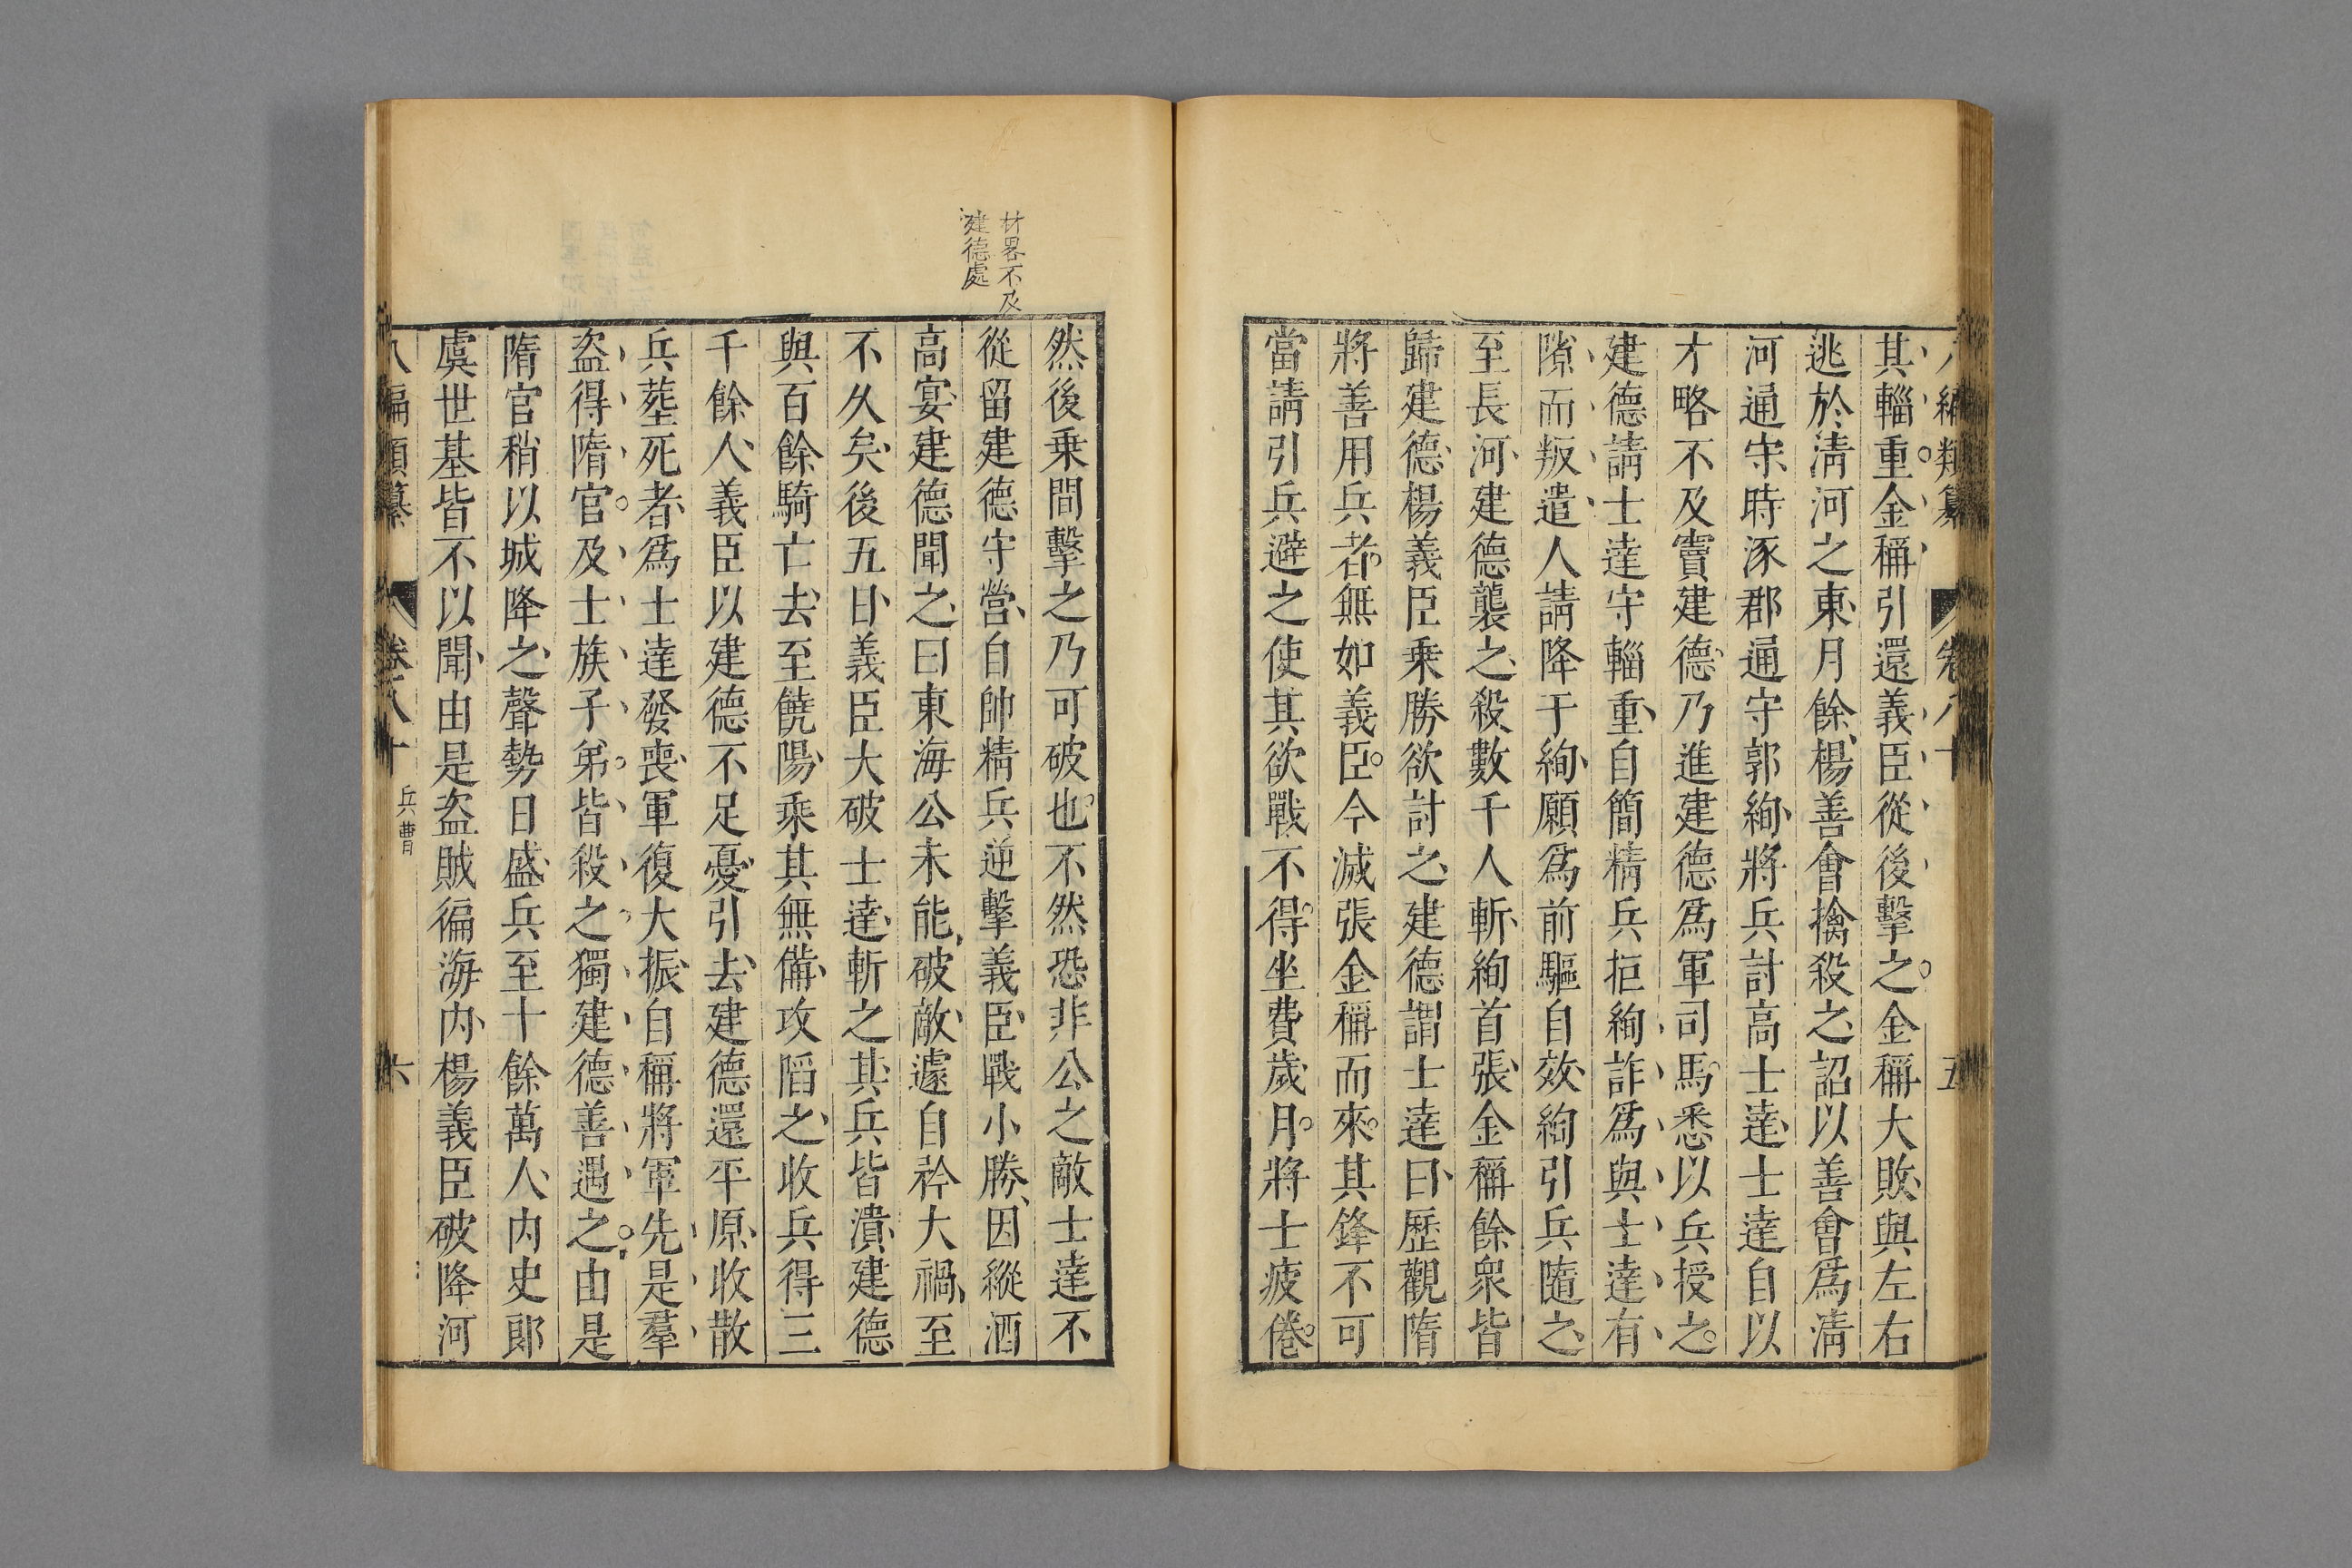 八編類纂 卷八十 五
其輜重金稱引還義臣從後擊之金稱大敗與左右
逃於淸河之東月餘楊善會擒殺之詔以善會爲淸
河通守時涿郡通守郭絢將兵討高士達士達自以
才略不及竇建德乃進建德爲軍司馬悉以兵授之
建德請士達守輜重自簡精兵拒絢詐爲與士達有
隙而叛遣人請降于絢願爲前驅自效絢引兵隨之
至長河建德襲之殺數千人斬絢首張金稱餘衆皆
歸建德楊義臣乗勝欲討之建德謂士達曰歷觀隋
將善用兵者無如義臣今滅張金稱而來其鋒不可
當請引兵避之使其欲戰不得坐費歲月將士疲倦
材畧不及
建德處
然後乗間擊之乃可破也不然恐非公之敵士達不
從留建德守營自帥精兵逆擊義臣戰小勝因縱酒
高宴建德聞之曰東海公未能破敵遽自矜大禍至
不久矣後五日義臣大破士達斬之其兵皆潰建德
與百餘騎亡去至饒陽乗其無備攻陷之收兵得三
千餘人義臣以建德不足憂引去建德還平原收散
兵葬死者爲士達發喪軍復大振自稱將軍先是羣
盜得隋官及士族子弟皆殺之獨建德善遇之由是
隋官稍以城降之聲勢日盛兵至十餘萬人內史郎
虞世基皆不以聞由是盜賊徧海內楊義臣破降河
八編類纂 卷八十 兵曹 六